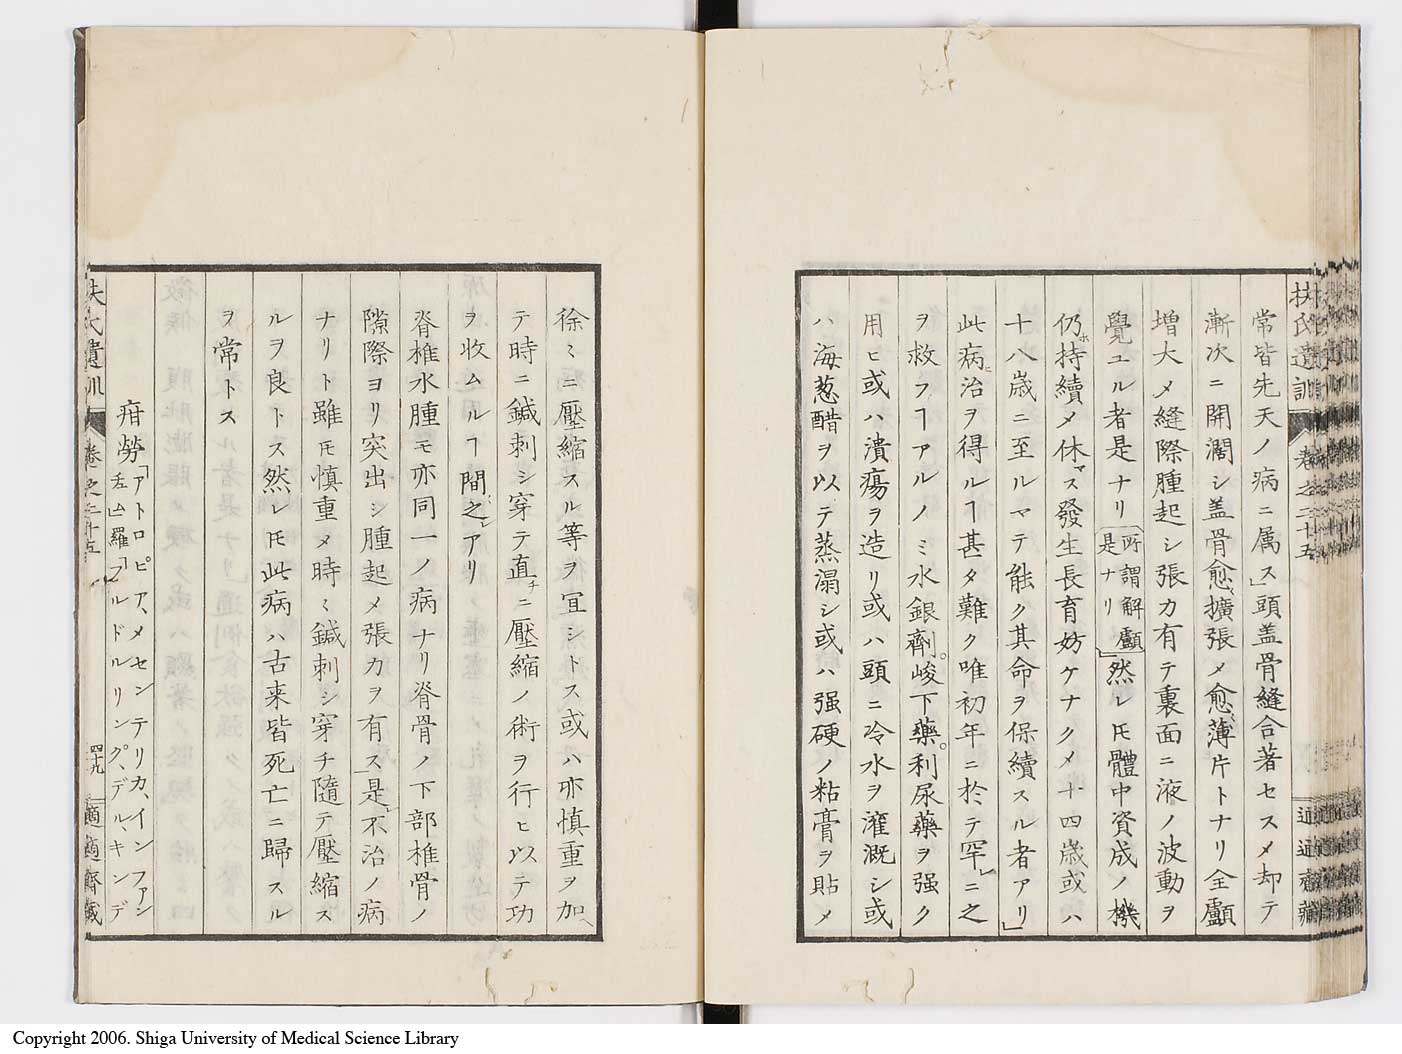 扶氏遺訓 卷之二十五
適適齋藏
常皆先天ノ病ニ属ス」頭盖骨縫合著セスメ却テ
漸次ニ開濶シ盖骨愈擴張メ愈薄片トナリ全顱
増大メ縫際腫起シ張力有テ裏面ニ液ノ波動ヲ
覺ユル者是ナリ〔所謂解顱是ナリ〕」然レ𪜈體中資成ノ機
仍ホ持續メ休マス發生長育妨ケナクメ十四歳或ハ
十八歳ニ至ルマテ能ク其命ヲ保續スル者アリ」
此病治ヲ得ルヿ甚タ難ク唯初年ニ於テ罕ニ之
ヲ救フヿアルノミ水銀劑。峻下藥。利尿藥ヲ强ク
用ヒ或ハ潰瘍ヲ造リ或ハ頭ニ冷水ヲ灌漑シ或
ハ海葱醋ヲ以テ蒸溻シ或ハ强硬ノ粘膏ヲ貼メ
徐々ニ壓縮スル等ヲ宜シトス或ハ亦慎重ヲ加ヘ
テ時ニ鍼刺シ穿テ直チニ壓縮ノ術ヲ行ヒ以テ功
ヲ收ムルヿ間之アリ
脊椎水腫モ亦同一ノ病ナリ脊骨ノ下部椎骨ノ
隙際ヨリ突出シ腫起メ張力ヲ有ス」是レ不治ノ病
ナリト雖𪜈慎重メ時々鍼刺シ穿チ隨テ壓縮ス
ルヲ良トス然レ𪜈此病ハ古来皆死亡ニ歸スル
ヲ常トス
疳勞「アトロピア、メセンテリカ、インファン
左ム羅「フルドルリング、デル、キンデ
扶氏遺訓 卷之二十五 四十九 適適齋藏